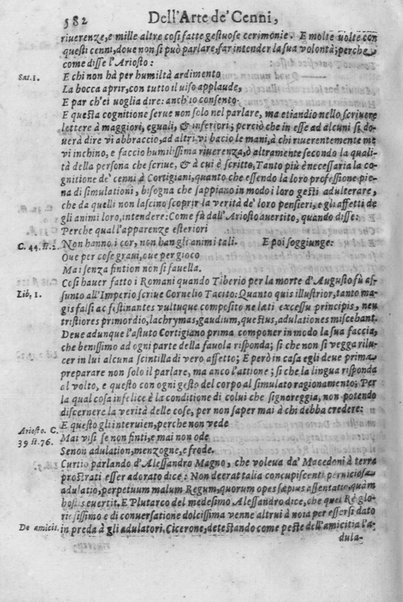 582 Dell'Arte de' Cenni,
riuerenze, e mille altre cose fatte gestuose cerimonie. E molte volte con
questi cenni, doue non si può parlare, far intender la sua volontà; perche
come disse l'Ariosto:
Sat. 1. E chi non hà per humiltà ardimento
La bocca aprir, con tutto il uiso applaude,
E par ch'ei uoglia dire: anch'io consento.
E questa cognitione serue non solo nel parlare, ma etiandio nello scriuere
lettere à maggiori, eguali, & inferiori; perciò che in esse ad alcuni si do
uerà dire vi abbraccio, ad altri vi bacio le mani, à chi riuerentemente me
vi inchino, e faccio humilissima riuerenza, ò altramente secondo la quali-
tà della persona che scriue, & à cui è scritto. Tanto più è necessaria la co-
gnitione de' cenni à Cortigiani, quanto che essendo la loro professione pie-
na di simulationi, bisogna che sappiano in modo i loro gesti adulterare,
che da quelli non lascino scoprir la verità de' loro pensieri, e gli affetti de
gli animi loro, intendere: Come fù dall'Ariosto auertito, quando disse:
Perche qual l'apparenze esteriori
C. 44. st. 1. Non hanno i cor, non han gli animi tali. E poi soggiunge:
Oue per cose graui, oue per gioco
Mai senza fintion non si fauella.
Cosi hauer fatto i Romani quando Tiberio per la morte d'Augusto fù as-
Lib, 1. sunto all'Imperio scriue Cornelio Tacito: Quanto quis illustrior, tanto ma-
gis falsi ac festinantes vultuque composito ne læti excessu principis, neu
tristiores primordio, lachrymas, gaudium, questus, adulationes miscebant.
Deue adunque l'astuto Cortigiano prima componer in modo la sua faccia,
che benissimo ad ogni parte della fauola risponda; si che non si vegga rilu-
cer in lui alcuna scintilla di vero affetto; E però in casa egli deue prima
preparare non solo il parlare, ma anco l'attione; si che la lingua risponda
al volto, e questo con ogni gesto del corpo al simulato ragionamento; Per
la qual cosa infelice è la conditione di colui che signoreggia, non potendo
discernere la verità delle cose, per non saper mai à chi debba credere:
Ariosto. C. E questo gli interuien, perche non vede
39 st. 76. Mai viso se non finti, e mai non ode
Senon adulation, menzogne, e frode.
Curtio parlando d'Alessandro Magno, che voleua da' Macedoni à terra
prostrati esser adorato dice: Non deerat talia concupiscenti perniciosa
adulatio, perpetuum malum Regum, quorum opes sæpius assentatio, quàm
hostis euertit. E Plutarco del medesimo Alessandro dice, che quel Rè glo-
riosissimo e di conuersatione dolcissima venne altrui à noia per essersi dato
De amicit. in preda à gli adulatori. Cicerone, detestando come peste dell'amicitia l'a-
dula-